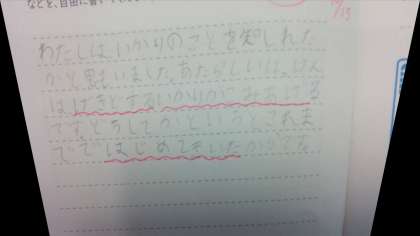 などを、自由に書いて
10/13
わたしは、いかりのことを知しれた
かと思いました。あたらしいはっけん
はけきとするいかりがにみあける
です。どうしてかというとこれま
でではじめてきいたからです。